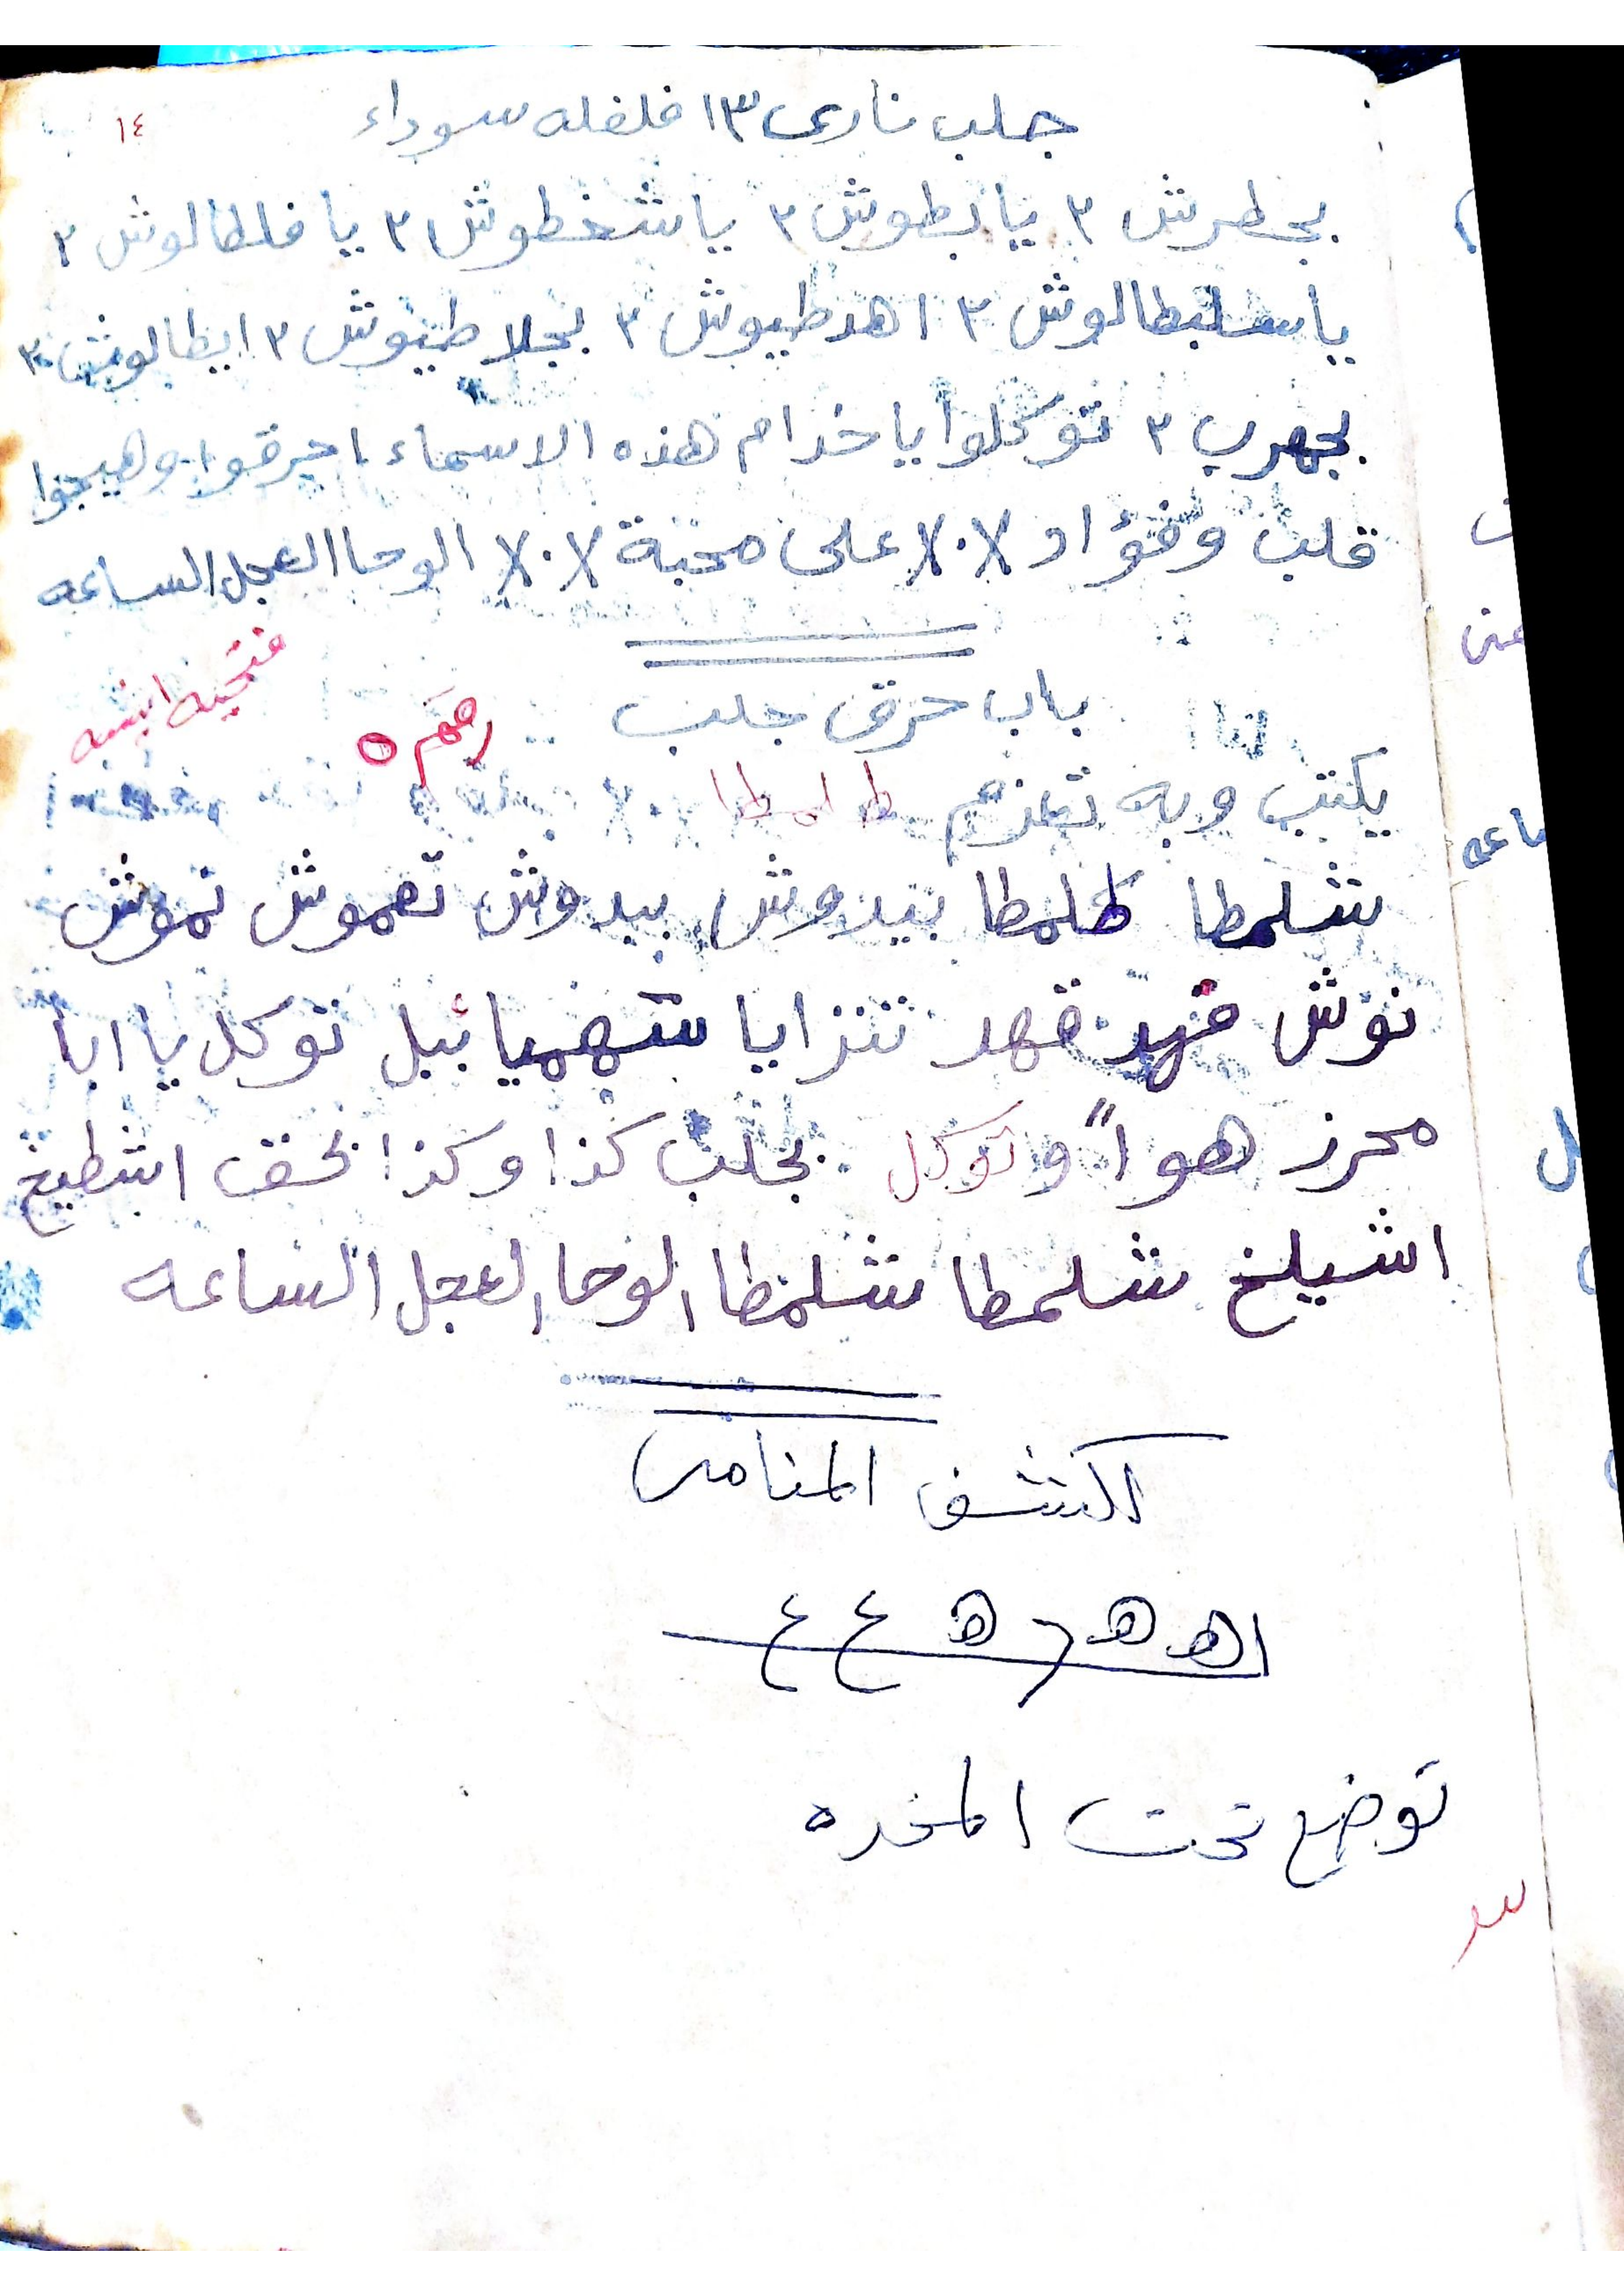 ١٤
جلب نارى ١٣ فلفله سوداء
بجطرش ٣ يا بطوش ٣ يا شخطوش ٣ يا فلطالوش ٣
يا سلبطالوش ٣ اهد طيوش ٣ بجلا طيوش ٣ ايطالوش ٣
بجهرب ٣ توكلوا يا خدام هذه الاسماء احرقوا وهيجوا
قلب وفؤاد X٠X على محبة X٠X الوحا العجل الساعه
باب حرق جلب
رقم ٥
يكتب وبه تعزم طلمطا
شلمطا طلمطا بيدوش بيدوش تهموش نموش
نوش قهد قهد تنزايا شهميائيل توكل يا ابا
محرز هواً وتوكل بجلب كذا وكذا بحق اشطيخ
اشيلخ شلمطا شلمطا الوحا العجل الساعه
الكشف المنامى
توضع تحت المخده